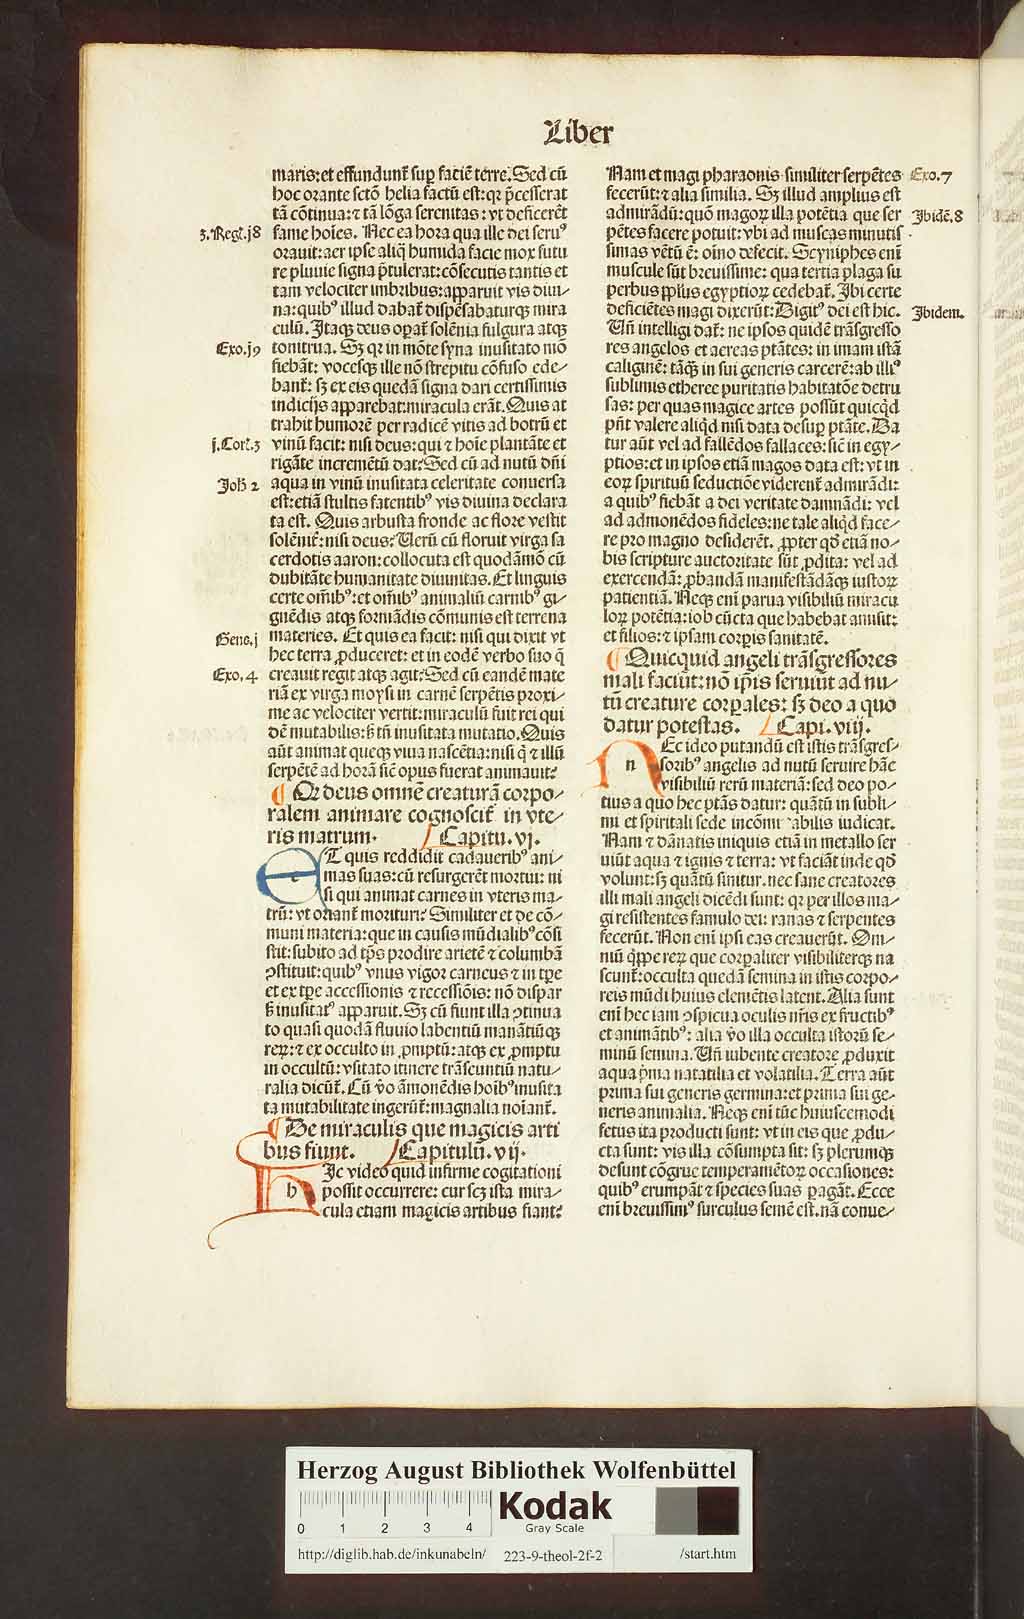 Liber
maris:et effundunt᷑ sup̱ faciē terre. Sed cū
hoc orante sctō helia factū est:qꝛ p̄cesserat
tā cōtinua:⁊ tā lōga serenitas:vt deficerēt
3.Reg᷑.j8
fame hoīes. Nec ea hora qua ille dei seruꝰ
orauit:aer ipse aliq̄ humida facie mox futu
re pluuie signa p̄tulerat:cōsecutis tantis et
tam velociter imbribus:apparuit vis diui-
na:quibꝰ illud dabat᷑ dispēsabaturqꝫ mira
culū. Itaqꝫ deus opat᷑ solēnia fulgura atqꝫ
Exo.j9
tonitrua. Sꝫ qꝛ in mōte syna inusitato mō
fiebāt: vocesqꝫ ille nō strepitu cōfuso ede-
bant᷑: sꝫ ex eis quedā signa dari certissimis
indicijs apparebat:miracula erāt. Quis at
trahit humorē per radicē vitis ad botrū et
j.Cor᷑.3
vinū facit: nisi deus: qui ⁊ hoīe plantāte et
rigāte incremētū dat? Sed cū ad nutū dn̄i
Joh̄ 2
aqua in vinū inusitata celeritate conuersa
est:etiā stultis fatentibꝰ vis diuina declara
ta est. Quis arbusta fronde ac flore vestit
solēnit᷑: nisi deus? Uerū cū floruit virga sa
cerdotis aaron: collocuta est quodāmō cū
dubitāte humanitate diuinitas. Et linguis
certe om̄ibꝰ:et om̄ibꝰ animaliū carnibꝰ gi-
gnēdis atqꝫ formādis cōmunis est terrena
Gene.j
materies. Et quis ea facit: nisi qui dixit vt
hec terra ꝓduceret: et in eodē verbo suo q̄
Exo.4
creauit regit atqꝫ agit? Sed cū eandē mate
riā ex virga moysi in carnē serpētis proxi-
me ac velociter vertit:miraculū fuit rei qui
dē mutabilis:ꝫ tn̄ inusitata mutatio. Quis
aūt animat queqꝫ viua nascētia:nisi q̄ ⁊ illū
serpētē ad horā sic̄ opus fuerat animauit?
¶ Qꝛ deus omnē creaturā corpo-
ralem animare cognoscit᷑ in vte-
ris matrum. Capitu.vj.
ET quis reddidit cadaueribꝰ ani-
mas suas:cū resurgerēt mortui: ni
si qui animat carnes in vteris ma-
trū: vt oriant᷑ morituri? Similiter et de cō-
muni materia:que in causis mūdialibꝰ cōsi
stit:subito ad tp̄s prodire arietē ⁊ columbā
ꝯstituit:quibꝰ vnus vigor carneus ⁊ in tp̄e
et ex tp̄e accessionis ⁊ recessiōis: nō dispar
ꝫ inusitatꝰ apparuit. Sꝫ cū fiunt illa ꝯtinua
to quasi quodā fluuio labentiū manātiūqꝫ
reꝝ:⁊ ex occulto in ꝓmptū:atqꝫ ex ꝓmptu
in occultū: vsitato itinere trāseuntiū natu-
ralia dicūt᷑. Cū v̄o āmonēdis hoībꝰ inusita
ta mutabilitate ingerūt᷑:magnalia noīant᷑.
¶ De miraculis que magicis arti
bus fiunt. Capitulū.vij.
HIc video quid infirme cogitationi
possit occurrere: cur scꝫ ista mira-
cula etiam magicis artibus fiant?
Nam et magi pharaonis similiter serpētes
Exo.7
fecerūt:⁊ alia similia. Sꝫ illud amplius est
admirādū:quō magoꝝ illa potētia que ser
Ibidē.8
pētes facere potuit:vbi ad muscas minutis
simas vētū ē: oīno defecit. Scyniphes enī
muscule sūt breuissime: qua tertia plaga su
perbus pp̄lus egyptioꝝ cedebat᷑. Ibi certe
deficiētes magi dixerūt: Digitꝰ dei est hic.
Ibidem.
Un̄ intelligi dat᷑: ne ipsos quidē trāsgresso
res angelos et aereas ptātes: in imam istā
caliginē: tāqꝫ in sui generis carcerē:ab illiꝰ
sublimis etheree puritatis habitatōe detru
sas: per quas magice artes possūt quicqͥd
pn̄t valere aliqͥd nisi data desup̱ ptāte. Da
tur aūt vel ad fallēdos fallaces: sic̄ in egy-
ptios:et in ipsos etiā magos data est: vt in
eoꝝ spirituū seductiōe viderent᷑ admirādi:
a quibꝰ fiebāt a dei veritate damnādi: vel
ad admonēdos fideles:ne tale aliqͥd face-
re pro magno desiderēt. ꝓpter qd̄ etiā no-
bis scripture auctoritate sūt ꝓdita: vel ad
exercendā: ꝓbandā manifestādāqꝫ iustoꝝ
patientiā. Neqꝫ enī parua visibiliū miracu
loꝝ potētia:iob cūcta que habebat amisit:
et filios:⁊ ipsam corp̱is sanitatē.
¶ Quicquid angeli trāsgressores
mali faciūt: nō ip̄is seruiūt ad nu-
tū creature corp̱ales: sꝫ deo a quo
datur potestas. Capi.viij.
NEc ideo putandū est istis trāsgres-
soribꝰ angelis ad nutū seruire hāc
visibiliū rerū materiā:sed deo po-
tius a quo hec ptās datur: quātū in subli-
mi et spiritali sede incōmutabilis iudicat.
Nam ⁊ dānatis iniquis etiā in metallo ser
uiūt aqua ⁊ ignis ⁊ terra: vt faciāt inde qd̄
volunt:sꝫ quātū sinitur. nec sane creatores
illi mali angeli dicēdi sunt: qꝛ per illos ma-
gi resistentes famulo dei: ranas ⁊ serpentes
fecerūt. Non enī ipsi eas creauerūt. Om-
niū qͥppe reꝝ que corp̱aliter visibiliterqꝫ na
scunt᷑:occulta quedā semina in istis corpo-
reis mūdi huius elemētis latent. Alia sunt
enī hec iam ꝯspicua oculis nr̄is ex fructibꝰ
et animātibꝰ: alia v̄o illa occulta istorū se-
minū semina. Un̄ iubente creatore ꝓduxit
aqua p̄ma natatilia et volatilia. Terra aūt
prima sui generis germina:et prima sui ge-
neris animalia. Neqꝫ enī tūc huiuscemodi
fetus ita producti sunt: vt in eis que ꝓdu-
cta sunt: vis illa cōsumpta sit: sꝫ plerumqꝫ
desunt cōgrue temperamētoꝝ occasiones:
quibꝰ erumpāt ⁊ species suas p̱agāt. Ecce
enī breuissimꝰ surculus semē est. nā conue-
Herzog August Bibliothek Wolfenbüttel
0 1 2 3 4
Kodak
Gray Scale
http://diglib.hab.de/inkunabeln/ 223-9-theol-2f-2 /start.htm